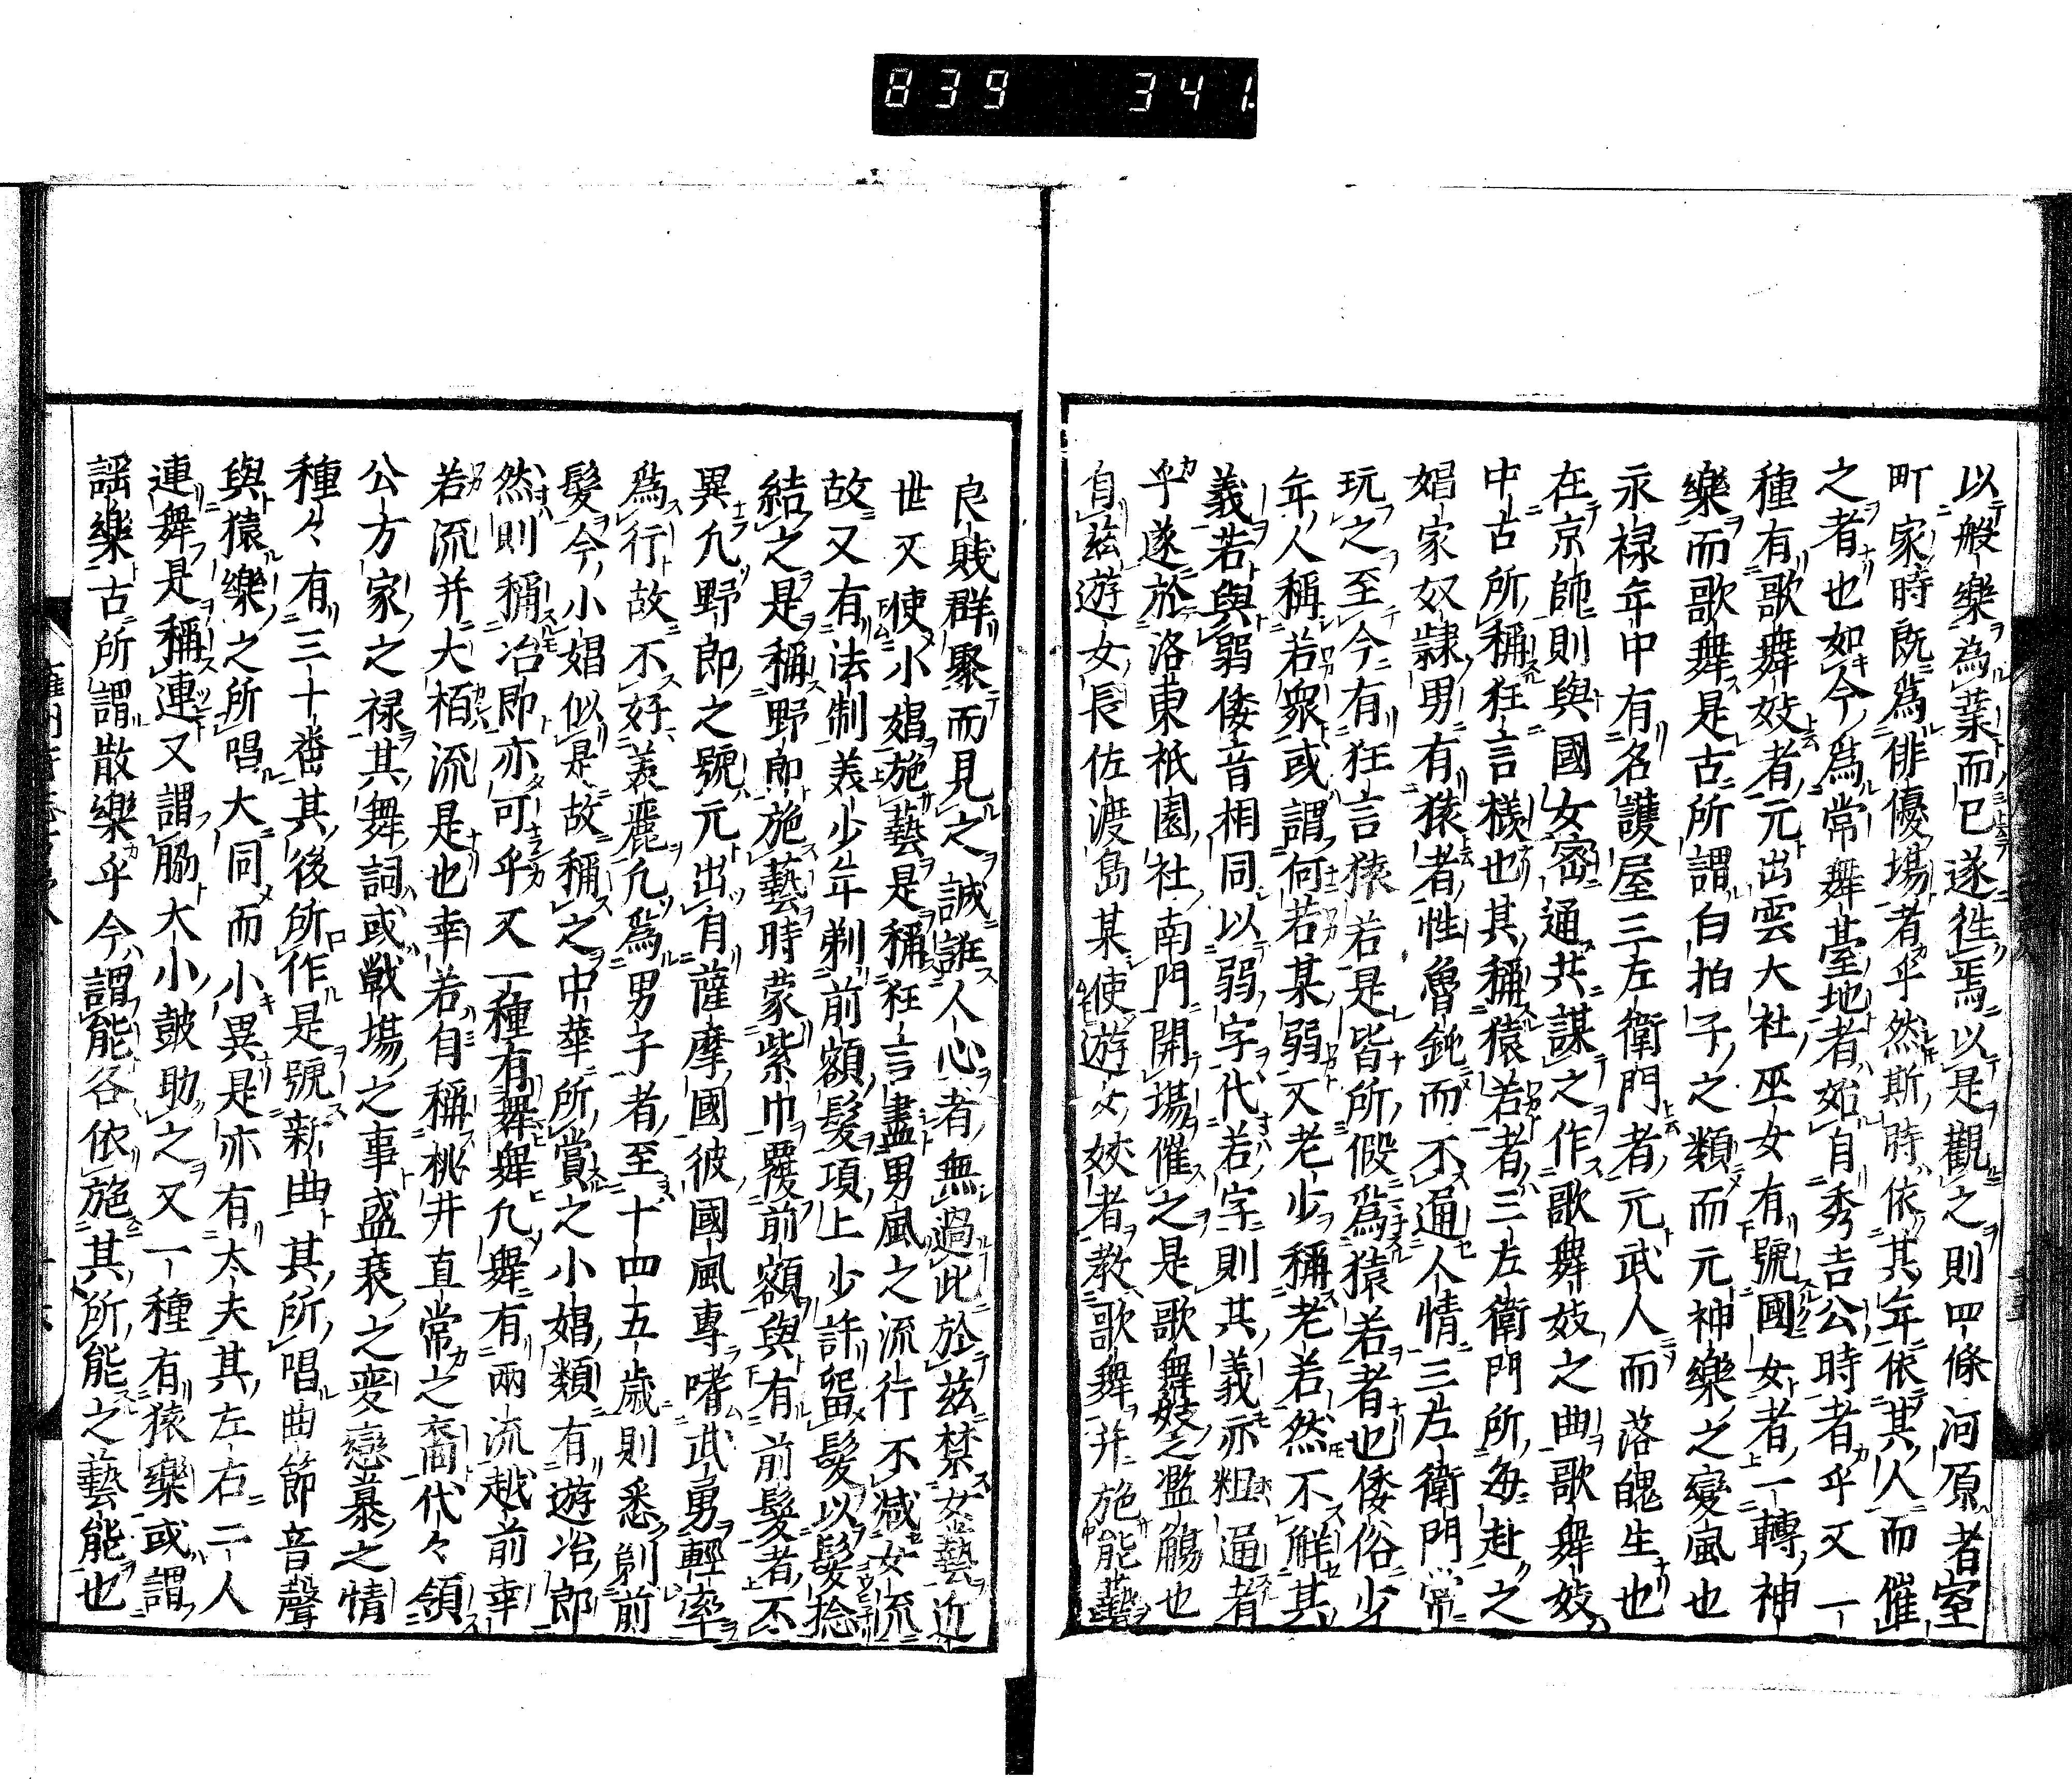 839 341
以般樂為業而已遂徃焉以是觀之則四條河原者室
町家時既爲俳優場者乎然斯時依其年依其人而催
之者也如今爲常舞臺地者始自秀吉公時者乎又一
種有歌舞妓者元出雲大社巫女有號國女者一轉神
樂而歌舞是古所謂白拍子之類而元神樂之變風也
永禄年中有名護屋三左衛門者元武人而落魄生也
在京師則與國女密通共謀之作歌舞妓之曲歌舞妓
中古所稱狂言樣也其稱猿若者三左衛門所每赴之
娼家奴隷男有猿者性魯鈍而不通人情三左衛門常
玩之至今有狂言猿若是皆所假爲猿若者也倭俗少
年人稱若衆或謂何若某弱又老少稱老若然不觧其
義若與弱倭音相同以弱字代若字則其義亦粗通者
乎遂於洛東祇園社南門開場催之是歌舞妓之濫觴也
自茲遊女長佐渡島某使遊女姣者教歌舞并施能藝
良賤群聚而見之誠誑人心者無過此於茲禁女藝近
世又使小娼施藝是稱狂言盡男風之流行不減女流
故又有法制美少年剃前額髮項上少許畱髮以髮捻
結之是稱野郎施藝時蒙紫巾覆前額與有前髮者不
異凢野郎之號元出有薩摩國彼國風專嗜武勇輕率
爲行故不好美麗凢爲男子者至十四五歲則悉剔前
髮今小娼似是故稱之中華所賞之小娼類有遊冶郎
然則稱冶郎亦可乎又一種有舞舞凢舞有兩流越前幸
若流并大栢流是也幸若自稱桃井直常之裔代々領
公方家之禄其舞詞或戰場之事盛衰之变戀慕之情
種々有三十畨其後所作是號新曲其所唱曲節音聲
與猿樂之所唱大同而小異是亦有太夫其左右二人
連舞是稱連又謂脇大小鼓助之又一種有猿樂或謂
謡樂古所謂散樂乎今謂能各依施其所能之藝能也